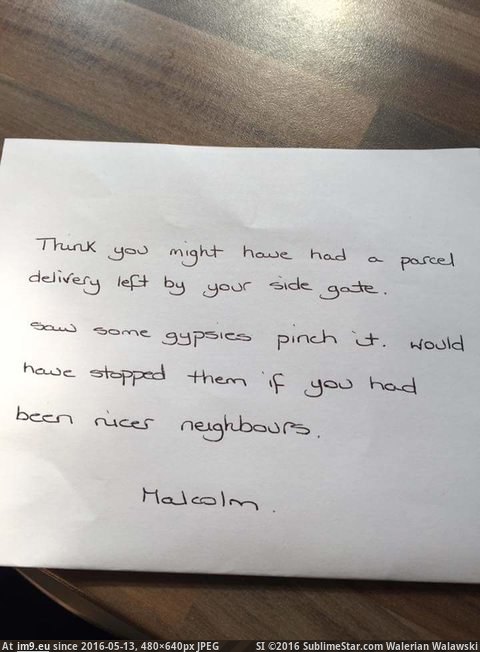 Think you might have had a parcel
delivery left by your side gate.
saw some gypsies pinch it. would
have stopped them if you had
been nicer neighbours.
Malcolm.
At im9.eu since 2016-05-13, 480×640px JPEG SI ©2016 SublimeStar.com Walerian Walawski